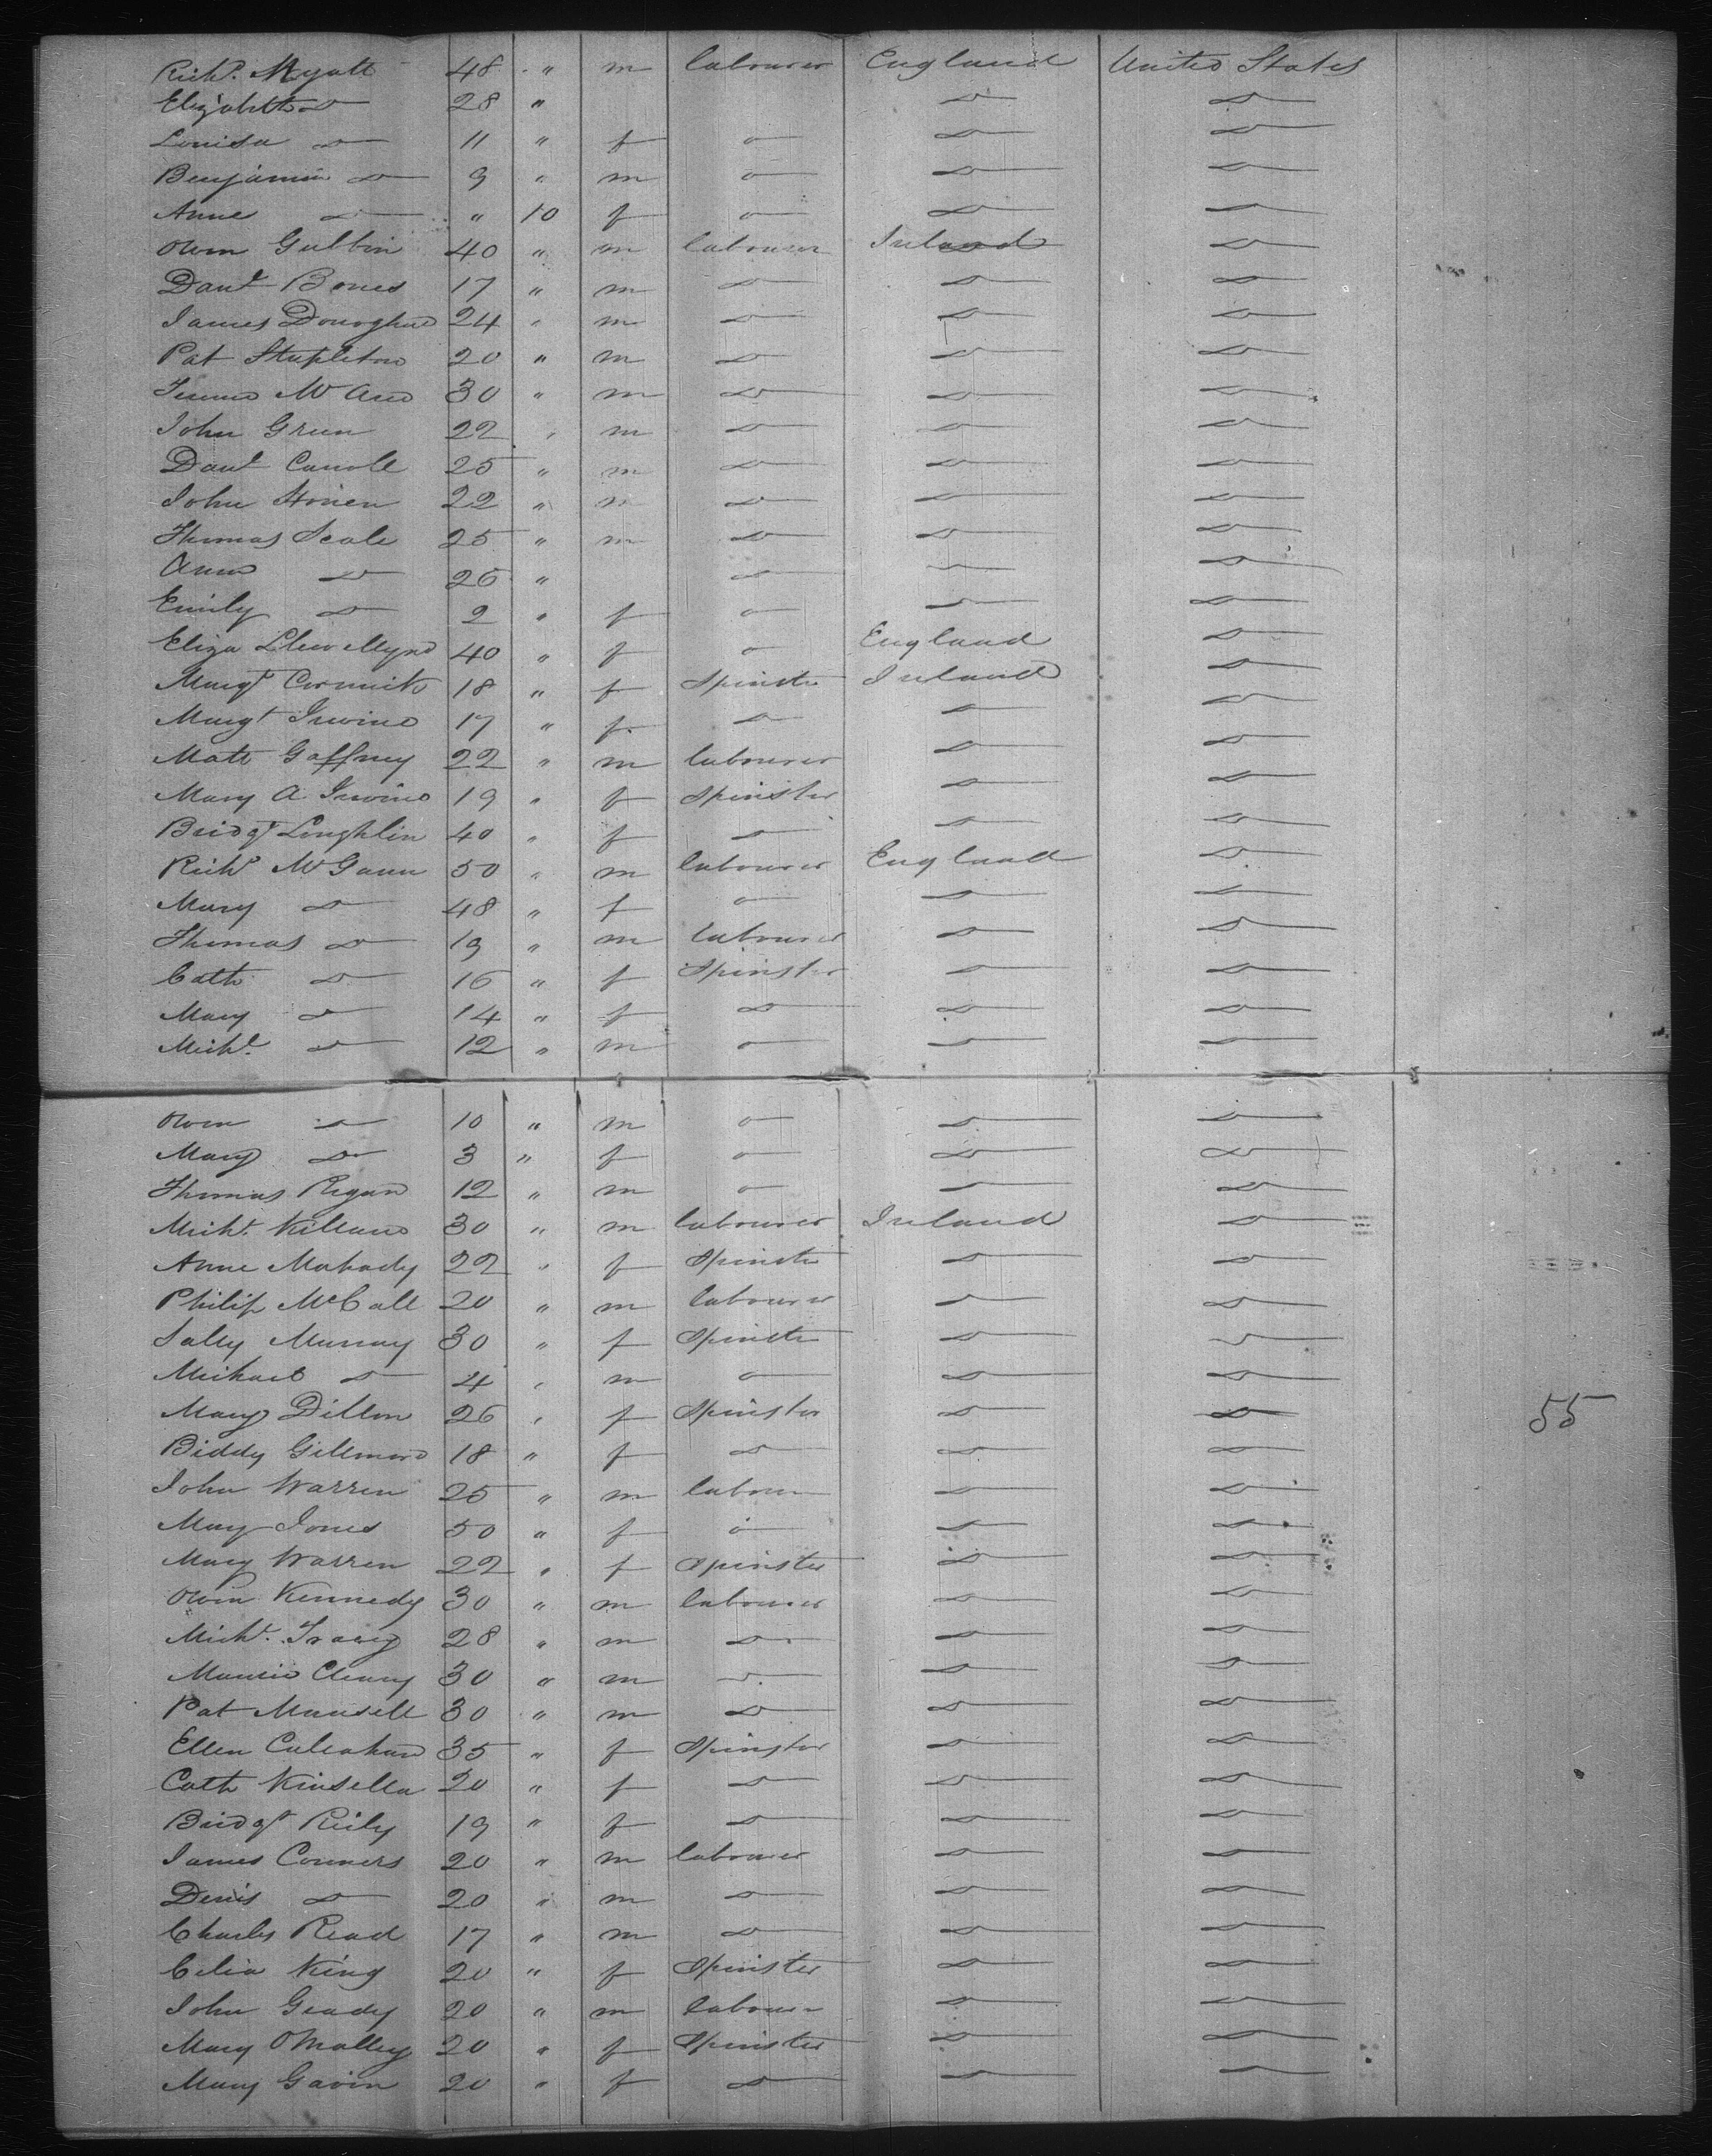 Richd. Myatt 48 " m labourer England United States
Elizabeth do 28 " do do
Louisa do 11 " f o do do
Benjamin do 9 " m o do do
Anne do " 10 f o do do
Owen Gubbin 40 " m labourer Ireland do
Danl Bones 17 " m do do do
James Donoghue 24 " m do do do
Pat Stapleton 20 " m do do do
30 " m do do do
John Green 22 " m do do do
Danl Carroll 25 " m do do do
John 22 " m do do do
Thomas Seale 25 " m do do do
Anne do 26 " do do do
Emily do 2 " f o do do
Eliza Llewellyn 40 " f o England do
Margt Cormick 18 " f Spinster Ireland do
Margt Irwine 17 " f do do do
Matt Gaffney 22 " m labourer do do
Mary A. Irwine 19 " f Spinster do do
Bridgt Loughlin 40 " f do do do
Richd McGann 50 " m labourer England do
Mary do 48 " f o do do
Thomas do 19 " m labourer do do
Cath do 16 " f Spinster do do
Mary do 14 " f do do do
Michl. do 12 " m o do do
Owen do 10 " m o do do
Mary do 3 " f o do do
Thomas Regan 12 " m o do do
Michl. Killand 30 " m labourer Ireland do
Anne Mahady 22 " f Spinster do do
Philip McCall 20 " m labourer do do
Sally Murray 30 " f Spinster do do
Michael do 4 " m o do do
Mary Dillon 26 " f Spinster do do 55
Biddy Gillmore 18 " f do do do
John Warren 25 " m labourer do do
Mary Jones 50 " f o do do
Mary Warren 22 " f Spinster do do
Owen Kennedy 30 " m labourer do do
Michl. Tracey 28 " m do do do
Maurice Cleary 30 " m do do do
Pat Mansell 30 " m do do do
Ellen Caleahan 35 " f Spinster do do
Cath Kinsella 20 " f do do do
Bridgt Reily 19 " f do do do
James Conners 20 " m labourer do do
Denis do 20 " m do do do
Charles Read 17 " m do do do
Celia King 20 " f Spinster do do
John Geady 20 " m labourer do do
Mary OMalley 20 " f Spinster do do
Mary Gavin 20 " f do do do